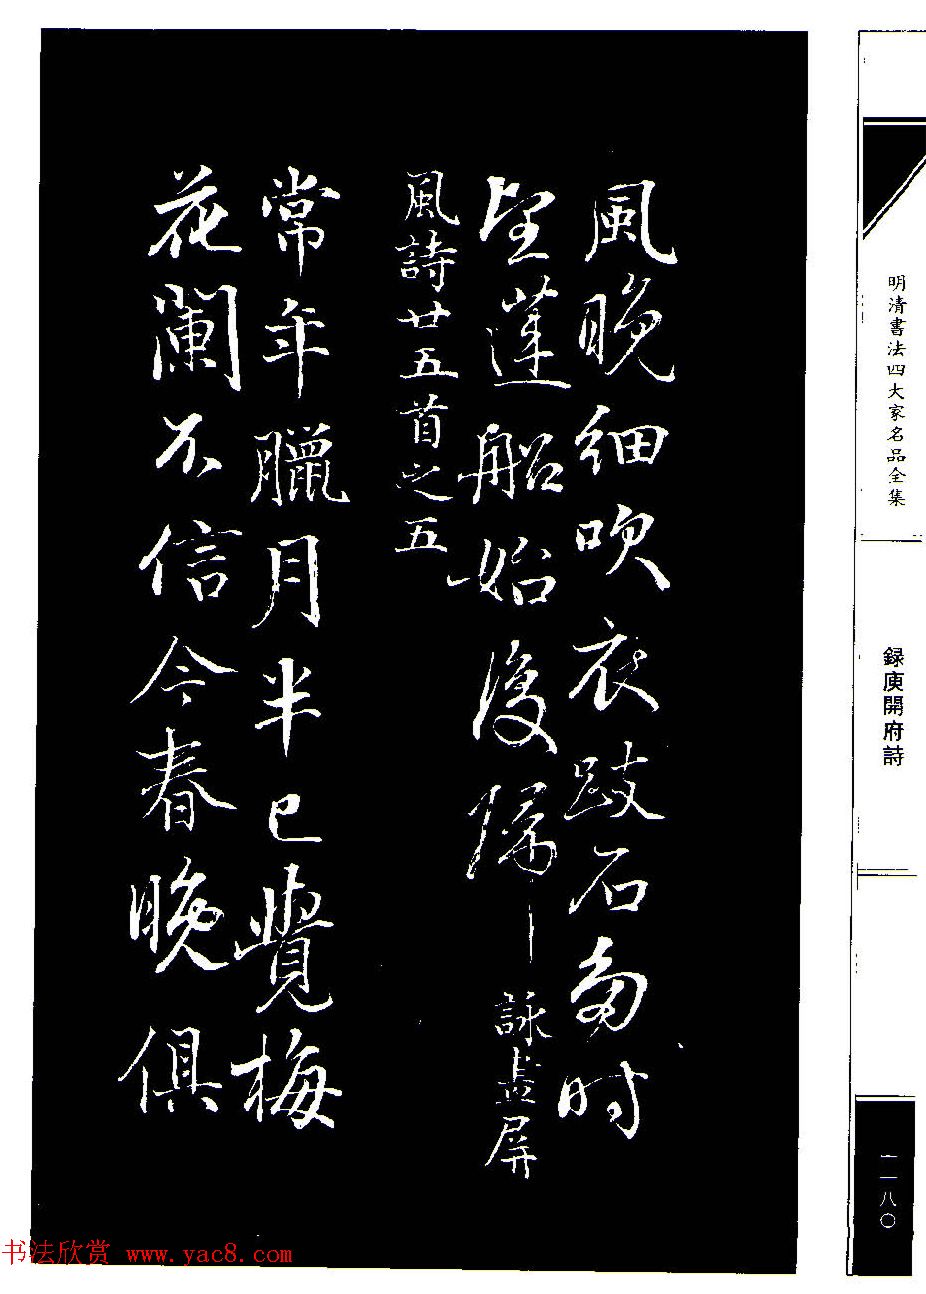 風晚細吹衣跂石多時
望蓮船始復歸
詠畫屏
風詩廿五首之五
常年臘月半已覺梅
花闌不信今春晚俱
明清書法四大家名品全集
録庾開府詩
一一八〇
书法欣赏 www.yac8.com